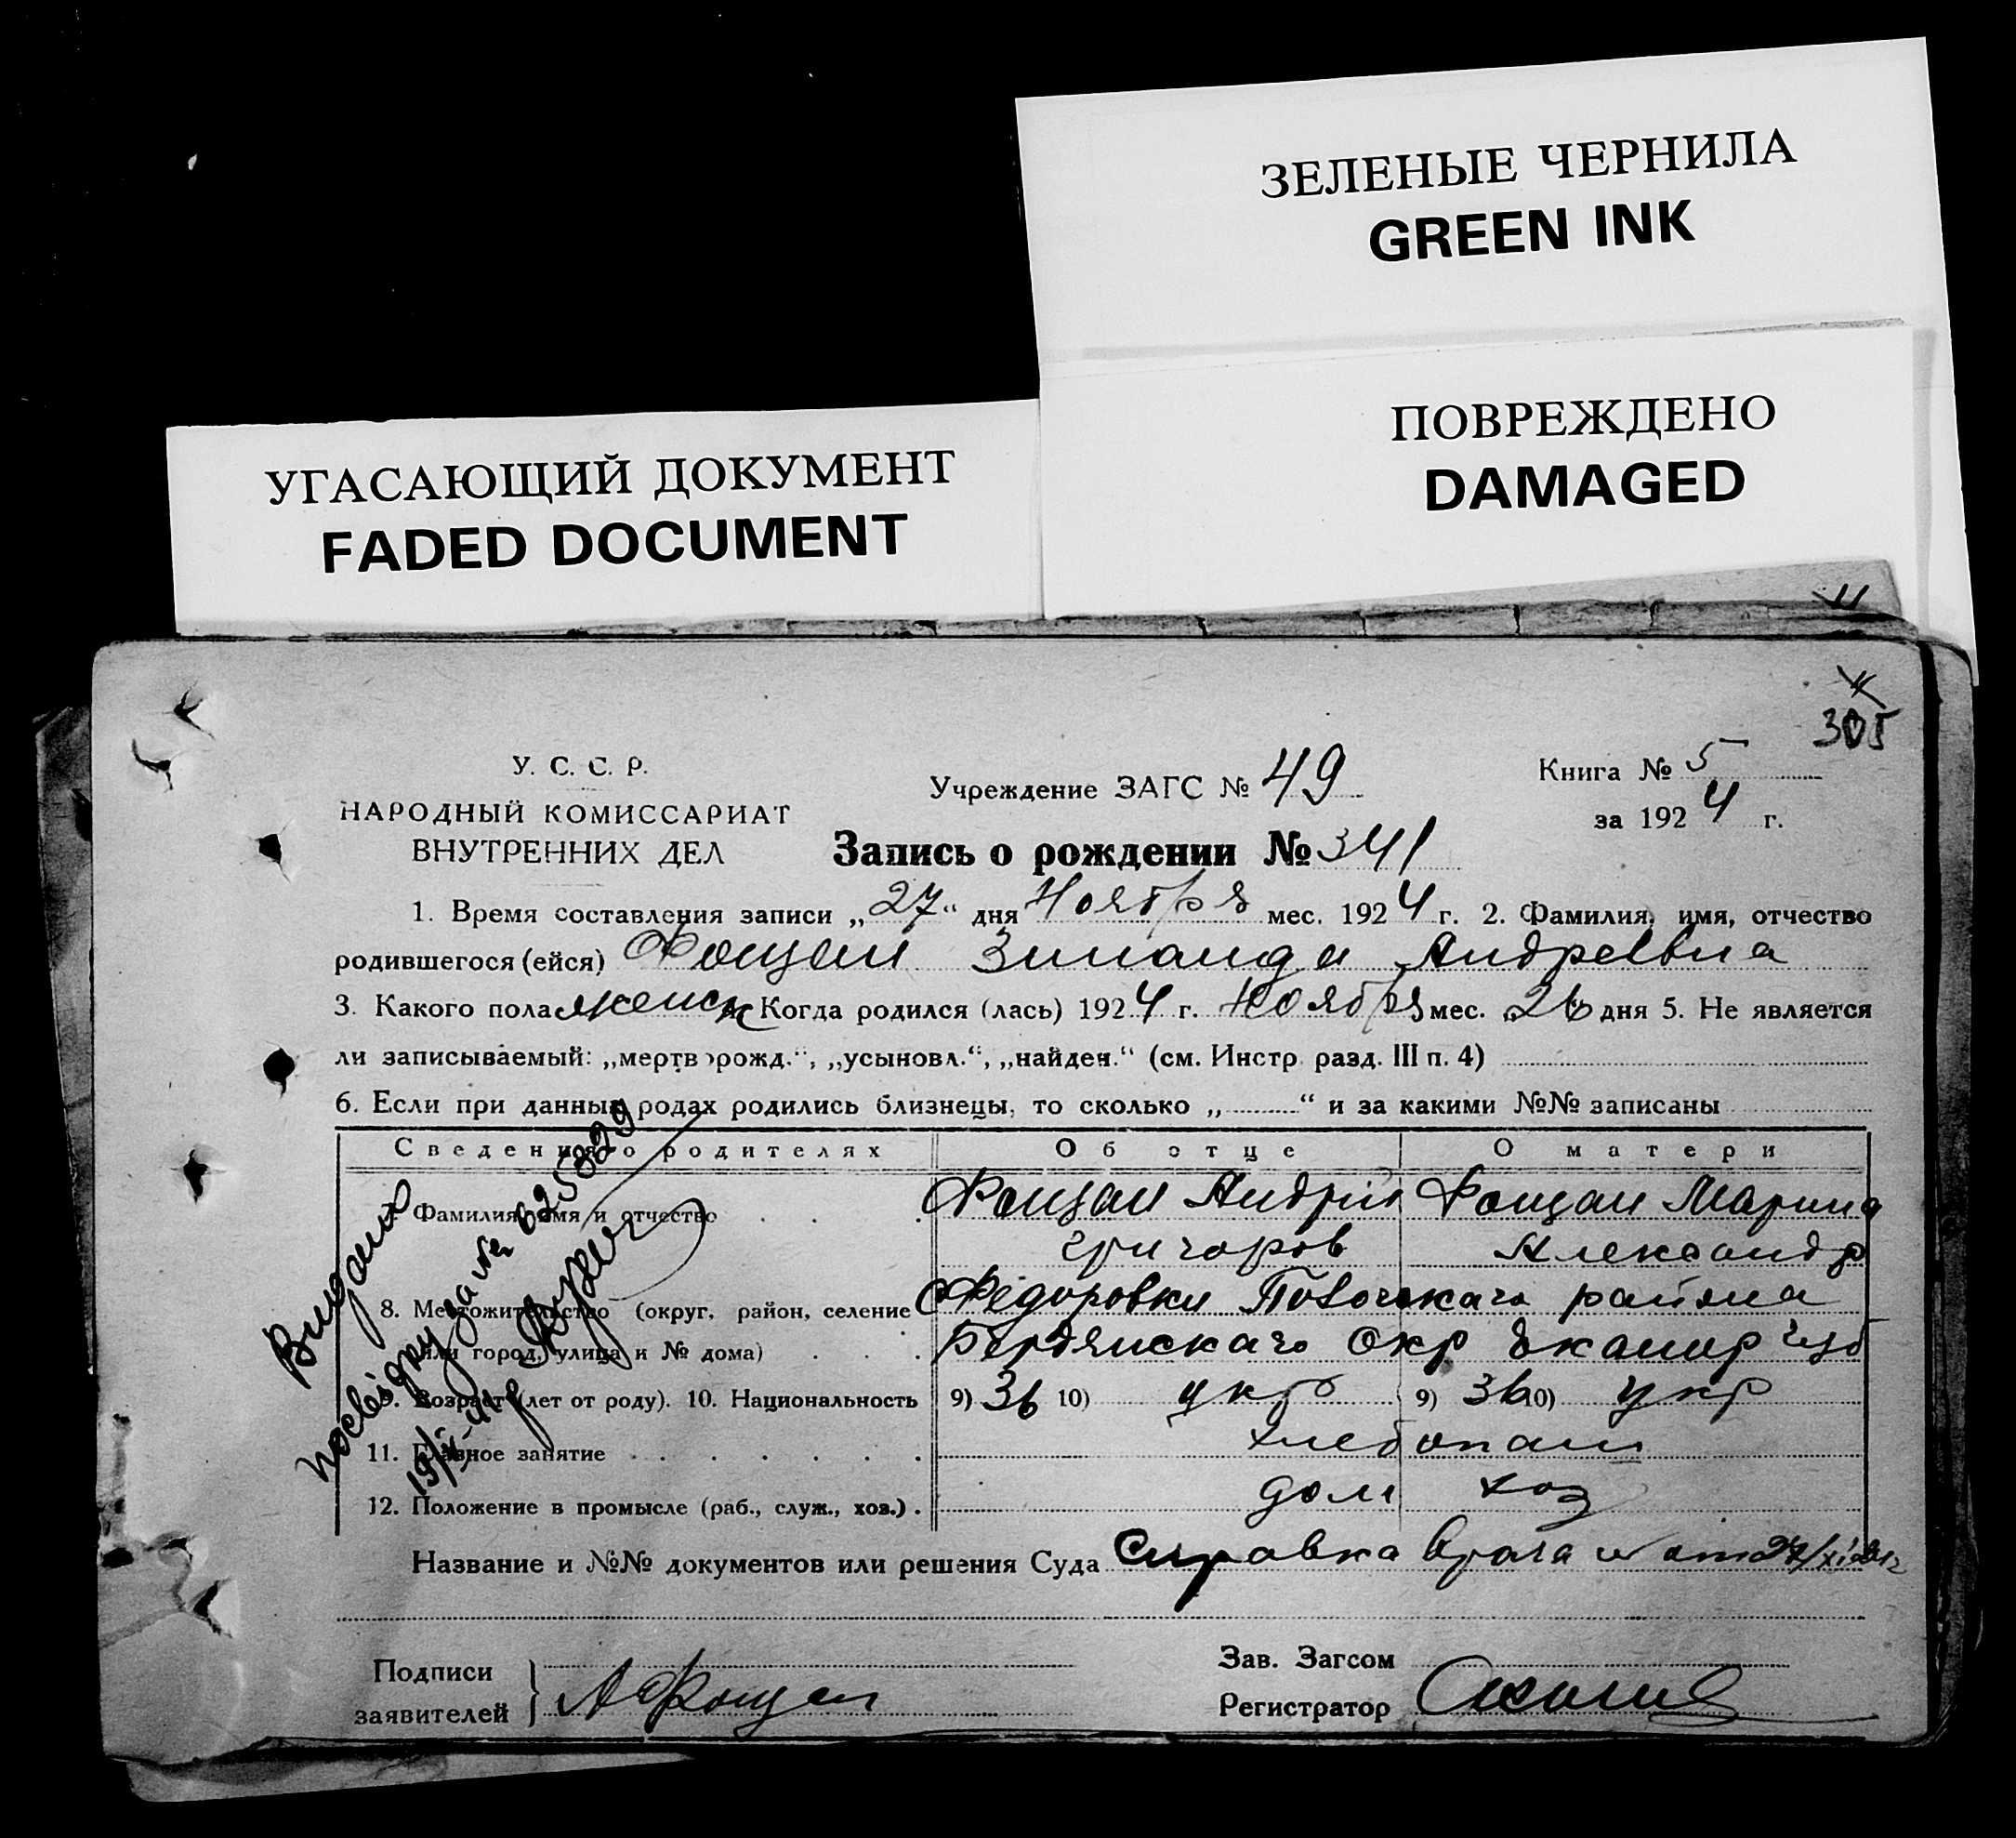 ЗЕЛЕНЫЕ ЧЕРНИЛА
GREEN INK
ПОВРЕЖДЕНО
DAMAGED
УГАСАЮЩИЙ ДОКУМЕНТ
FADED DOCUMENT
305
У. С. С. Р.
НАРОДНЫЙ КОМИССАРИАТ
ВНУТРЕННИХ ДЕЛ
Учреждение ЗАГС № 49
Книга № 5
за 1924 г.
Запись о рождении № 341
1. Время составления записи „27“ дня Ноября мес. 1924 г. 2. Фамилия, имя, отчество
родившегося (ейся) Фощан Зинаида Андреевна
3. Какого пола женск Когда родился (лась) 1924 г. Ноября мес. 26 дня 5. Не является
ли записываемый: „мертворожд.“, „усыновл.“, „найден.“ (см. Инстр. разд. III п. 4)
6. Если при данных родах родились близнецы, то сколько „ “ и за какими №№ записаны
Сведения о родителях Об отце О матери
7. Фамилия, имя и отчество Фощан Андрій Фощан Марина
Григоров Александр
8. Местожительство (округ, район, селение С Федоровки района
или город, улица и № дома) Бердянскаго Окр Екатир губ
9. Возраст (лет от роду). 10. Национальность 9) 36 10) укр 9) 36 10) укр
11. Главное занятие хлебопаш
12. Положение в промысле (раб., служ., хоз.) дом хоз
Название и №№ документов или решения Суда Справка врача от 27/XI
Подписи
заявителей } АФощан
Зав. Загсом
Регистратор
Видано
посвідку за №